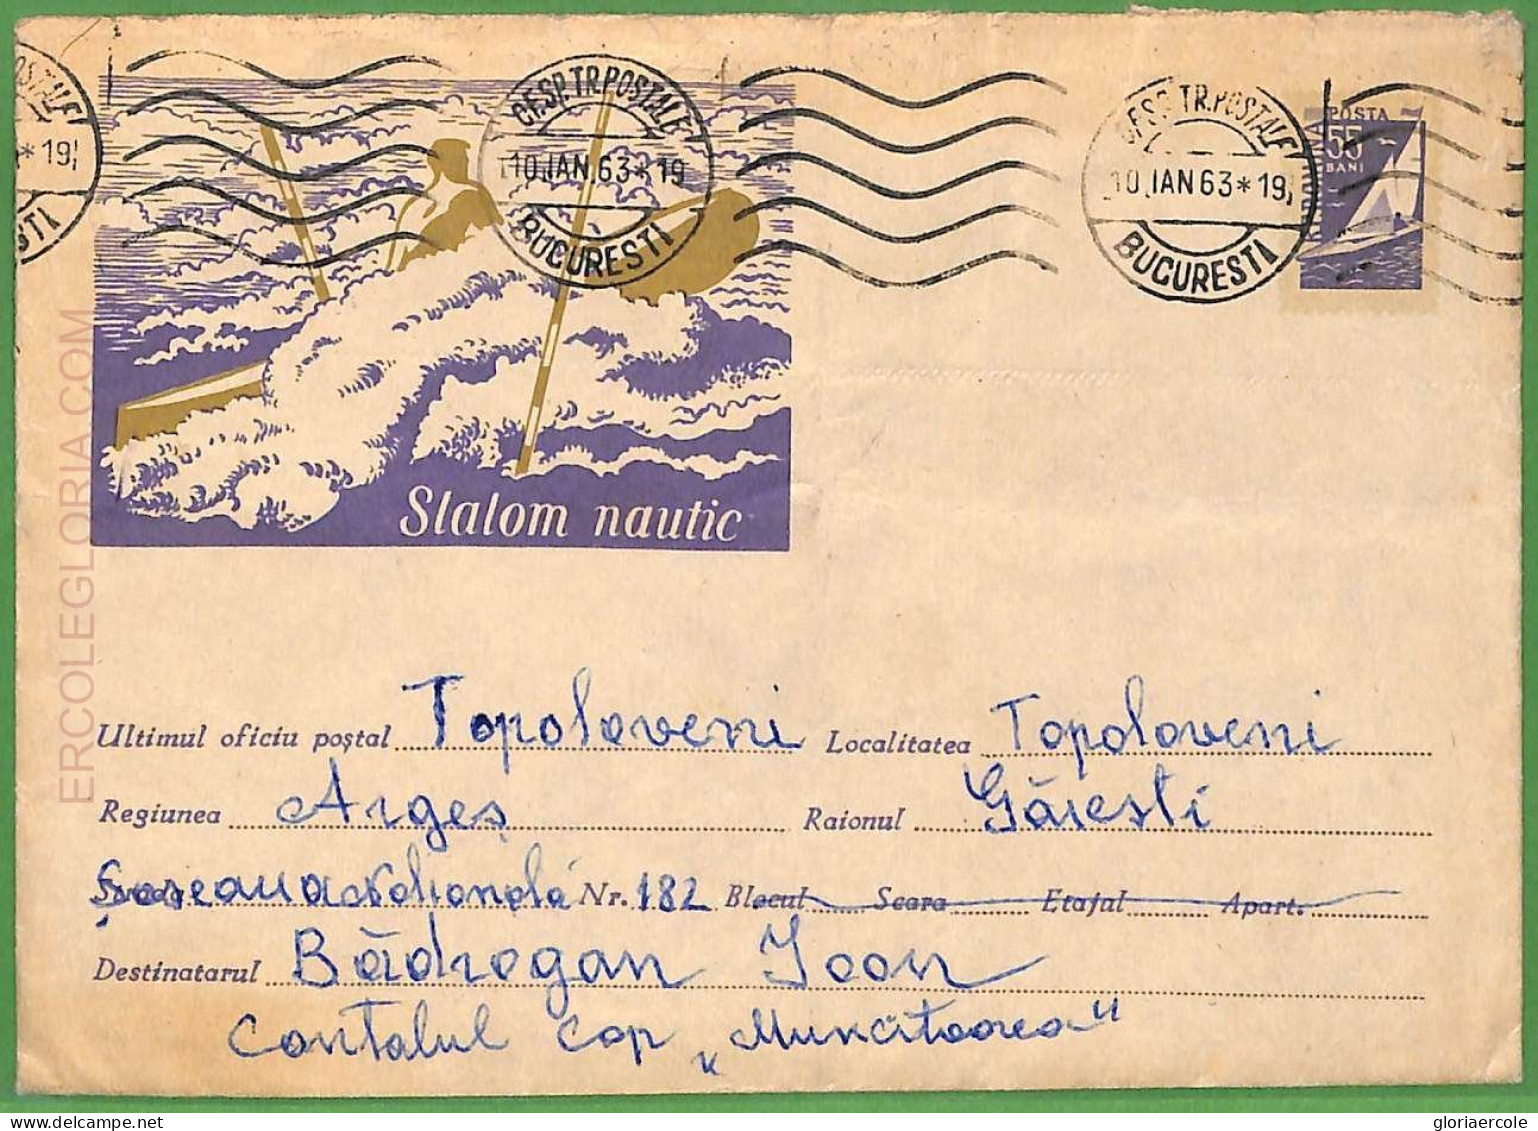 C.F.S.P.TR.POSTALE
10.IAN.63*19
BUCURESTI
C.F.S.P.TR.POSTALE
10.IAN 63*19
BUCURESTI
* 19
POSTA
55
BANI
Slalom nautic
ERCOLEGLORIA.COM
Ultimul oficiu poștal Topoloveni Localitatea Topoloveni
Regiunea Argeș Raionul Găiești
Șoseaua Națională Nr. 182 Blocul Scara Etajul Apart.
Destinatarul Bădrogan Ioan
Contabil Cop „Muncitoarea"
gloriaercole